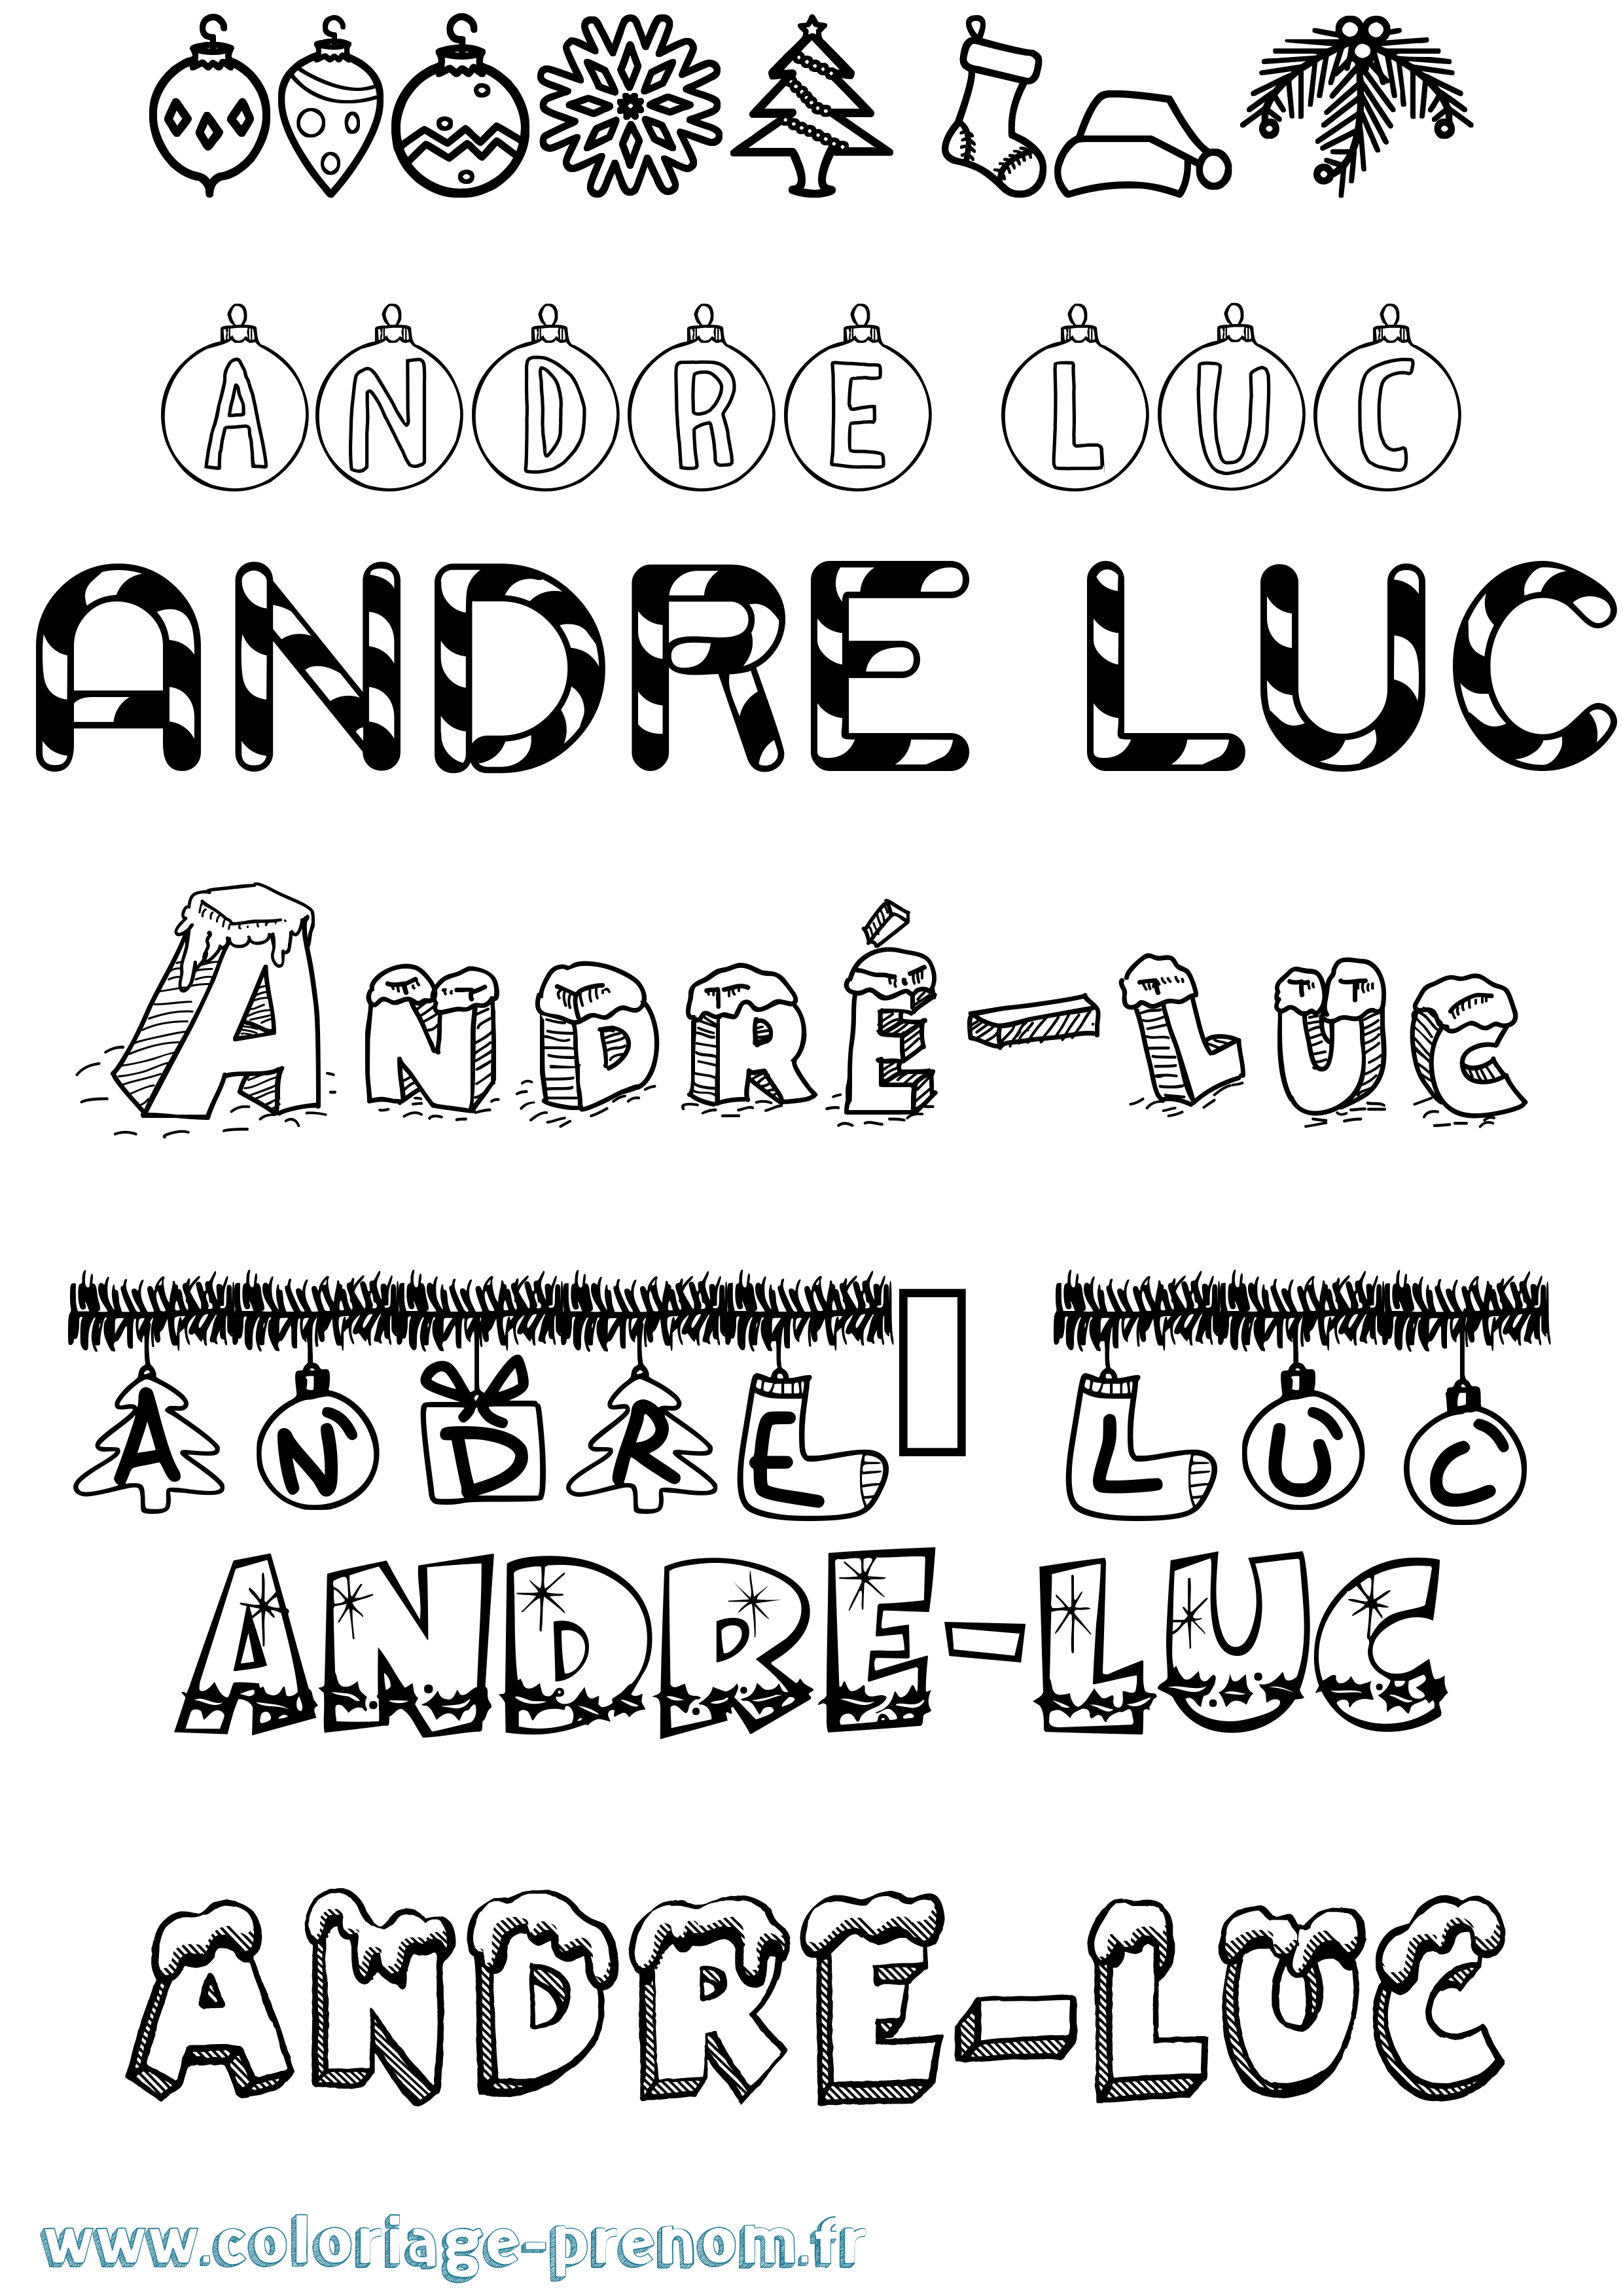 ANDRE LUC
ANDRE LUC
ANDRÉ-LUC
ANDRE LUC
ANDRE-LUC
ANDRE-LUC
www.coloriage-prenom.fr